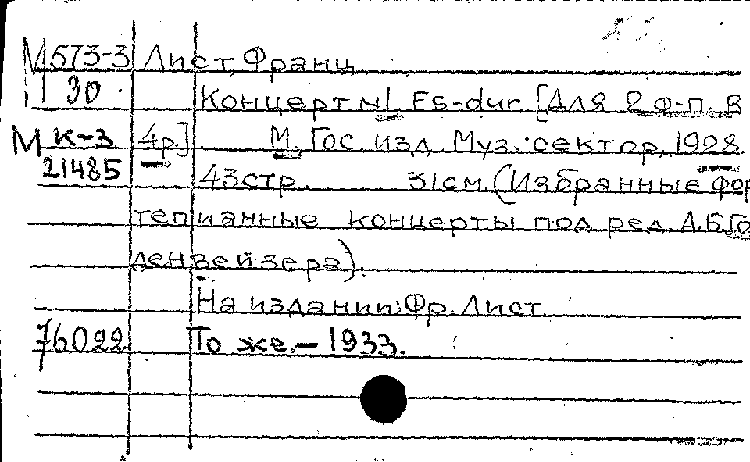 М573-3 Лист, Франц
I 30 Концерт №1 Es-dur. [Для 2 ф-п. в
М К-3 4р] М. Гос. изд. Муз. сектор, 1928.
21485 43стр. 31см. (Избранные фор
тепианные концерты под ред. А.Б.Го
денвейзера).
На издании: Фр. Лист
76022 То же. – 1933.